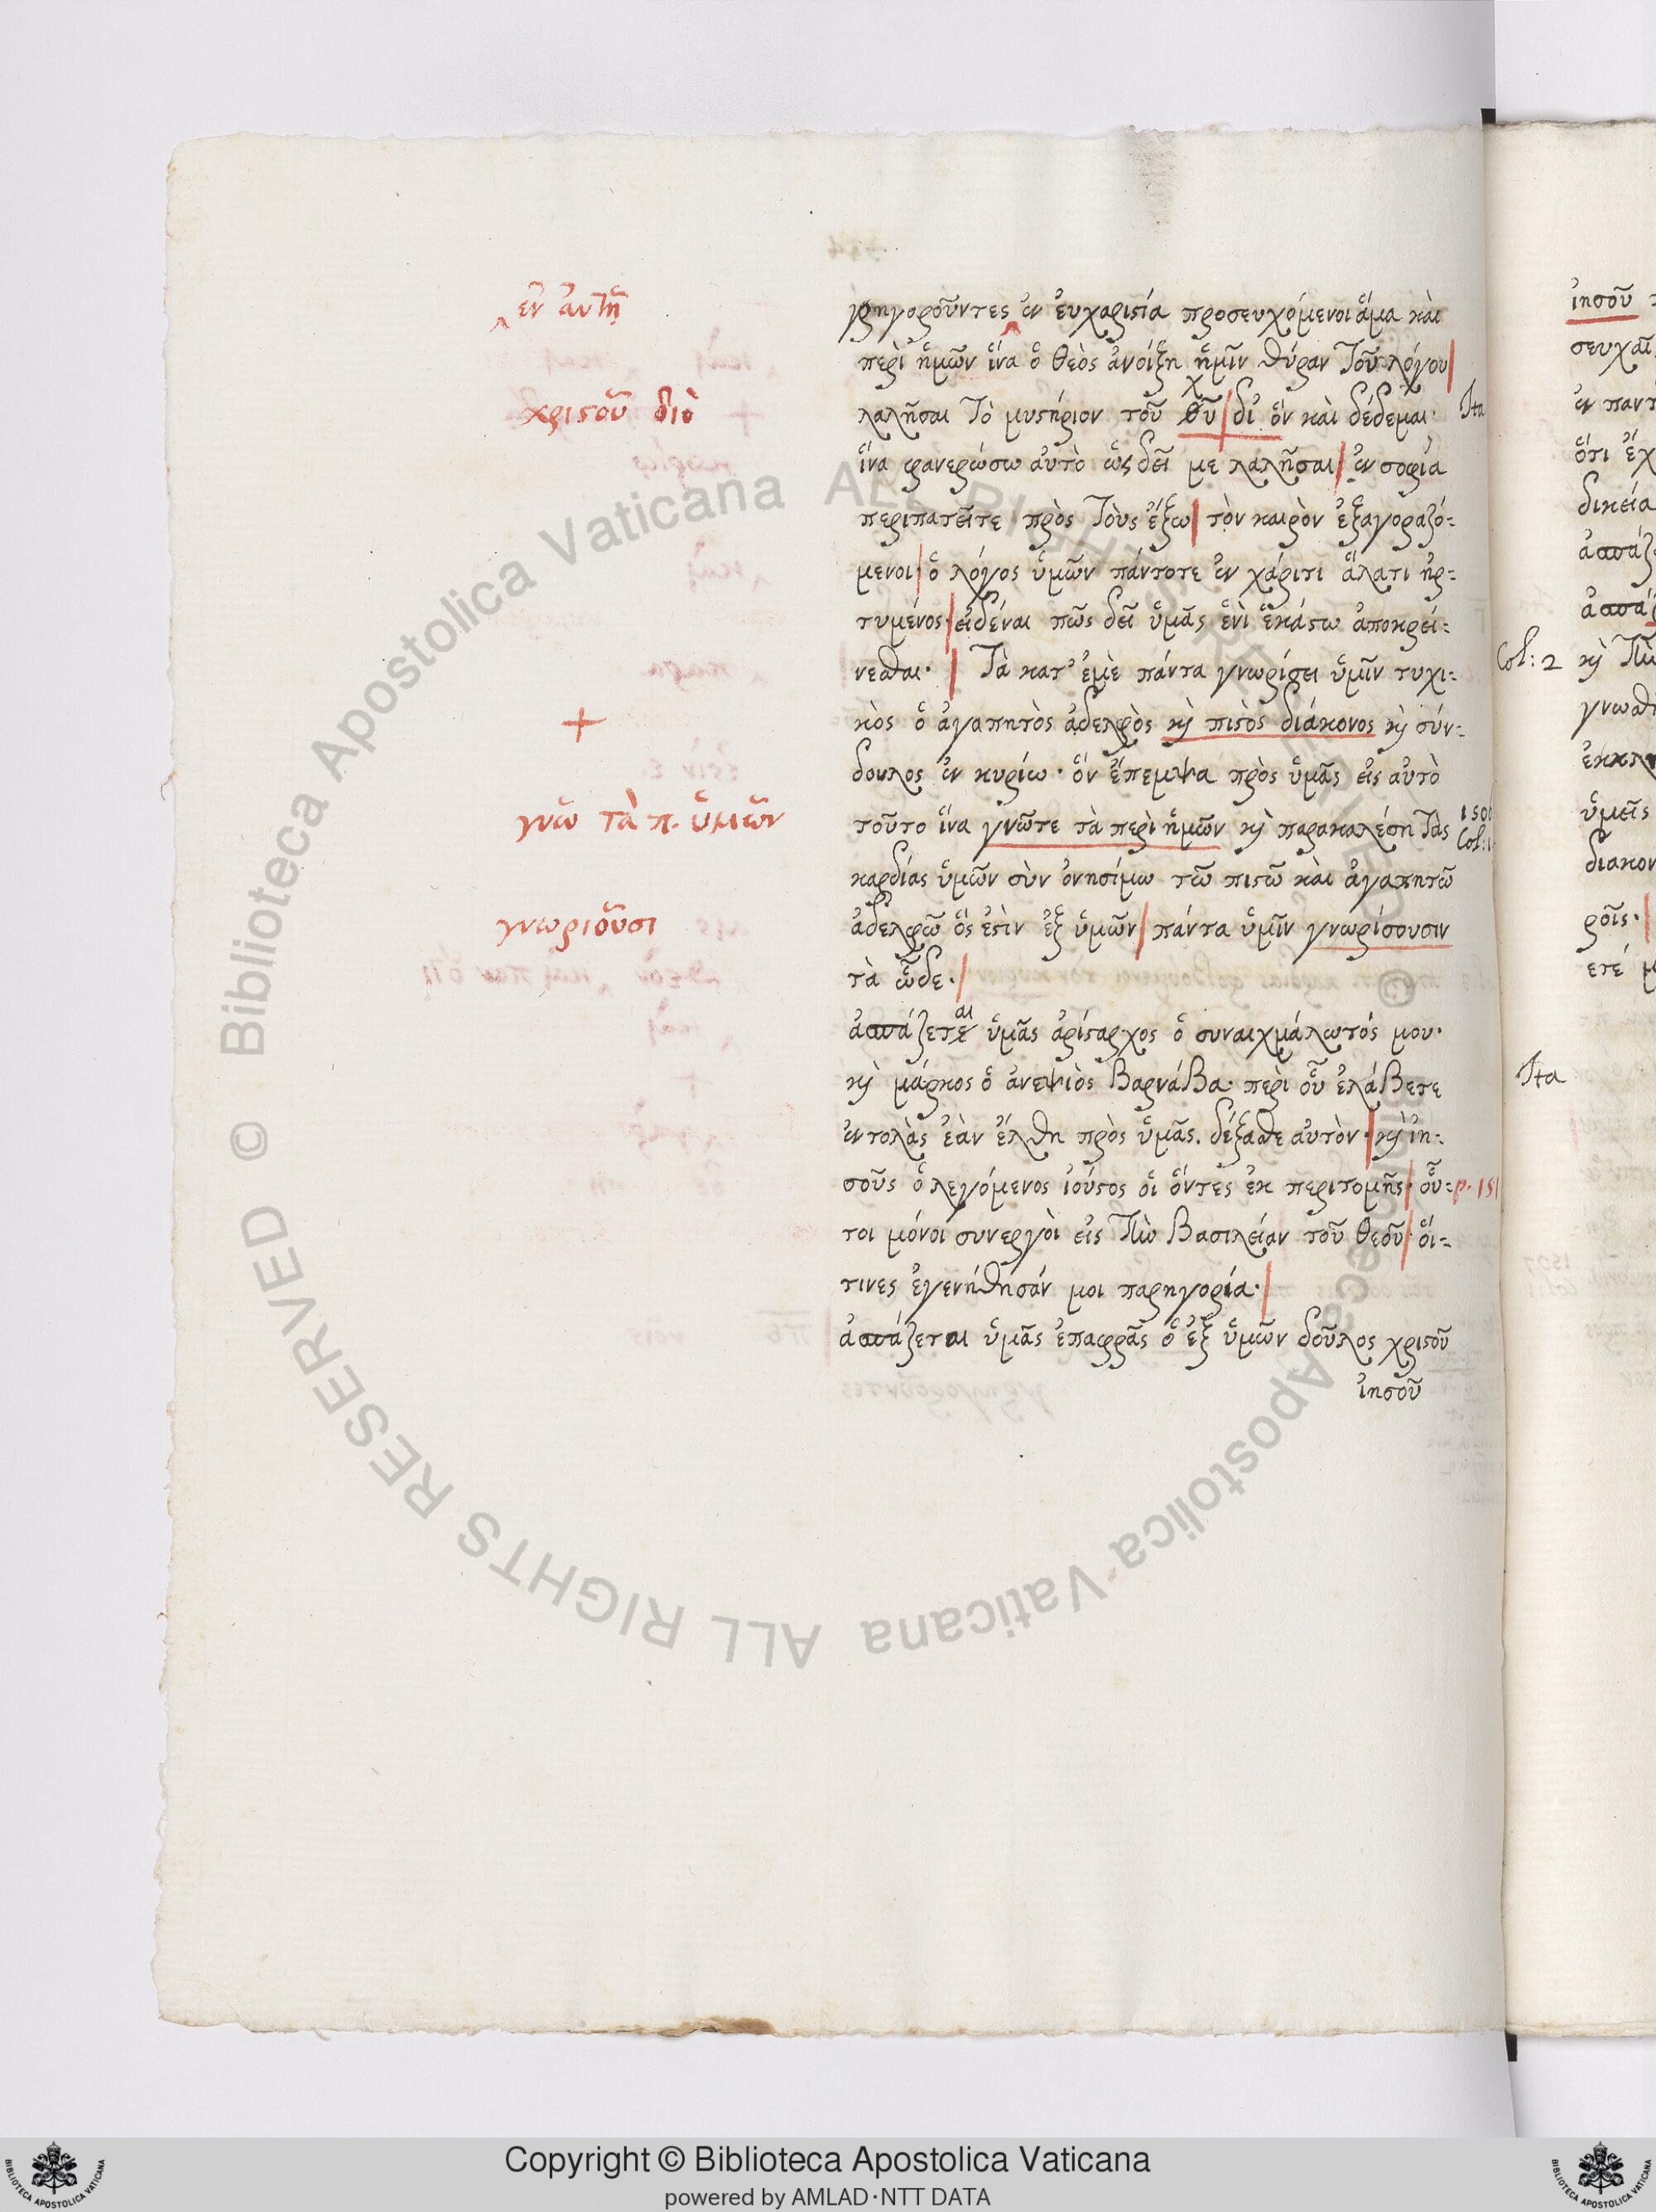 ἐν ἀυτῆ
γρηγοροῦντες ἐν ἐυχαριστία προσευχόμενοι ἅμα κὰι
περὶ ἡμῶν ἵνα ὁ θεὸς ἀνοίξη ἡμῖν θύραν τοῦ λόγου
χριστοῦ διὸ
λαλῆσαι τὸ μυστήριον τοῦ θῦ χ δι ὃν κὰι δέδεμαι· Ita
ἵνα φανερώσω ἀυτὸ ὡς δεῖ με λαλῆσαι ἐν σοφία
περιπατεῖτε πρὸς τοὺς ἔξω τὸν καιρὸν ἐξαγοραζό=
μενοι· ὁ λόγος ὑμῶν πάντοτε ἐν χάριτι ἅλατι ἠρ=
τυμένος· εἰδέναι πῶς δεῖ ὑμᾶς ἑνὶ ἑκάστω ἀποκρεί=
νεσθαι· Τὰ κατ' ἐμὲ πάντα γνωρίσει ὑμῖν τυχι=
+
κὸς ὁ ἀγαπητὸς ἀδελφὸς κὶ πιστὸς διάκονος κὶ σύν=
δουλος ἐν κυρίω· ὃν ἔπεμψα πρὸς ὑμᾶς εἰς αὐτὸ
γνῶ τὰ π. ὑμῶν
τοῦτο ἵνα γνῶτε τὰ περὶ ἡμῶν κὶ παρακαλέση τὰς
καρδίας ὑμῶν σὺν ὀνησίμω τῶ πιστῶ κὰι ἀγαπητῶ
γνωριοῦσι
ἀδελφῶ ὅς ἐστὶν ἐξ ὑμῶν πάντα ὑμῖν γνωρίσουσιν
τὰ ὧδε·
ἀσπάζετε αι ὑμᾶς ἀρίσταρχος ὁ συναιχμάλωτός μου·
κὶ μάρκος ὁ ἀνεψιὸς Βαρνάβα· περὶ οὗ ἐλάβετε
ἐντολὰς ἐὰν ἔλθη πρὸς ὑμᾶς. δέξασθε αὐτὸν· κὶ ἰη=
σοῦς ὁ λεγόμενος ἰοῦστος οἱ ὄντες ἐκ περιτομῆς· οὗ=
τοι μόνοι συνεργὸι εἰς τὴν Βασιλείαν τοῦ θεοῦ· οἵ=
τινες ἐγενήθησάν μοι παρηγορία·
ἀσπάζεται ὑμᾶς ἐπαφρᾶς ὁ ἐξ ὑμῶν δοῦλος χριστοῦ
ἰησοῦ
ἰησοῦ
Col: 2
Ita
© Biblioteca Apostolica Vaticana ALL RIGHTS RESERVED
© Biblioteca Apostolica Vaticana ALL RIGHTS RESERVED
Copyright © Biblioteca Apostolica Vaticana
powered by AMLAD·NTT DATA